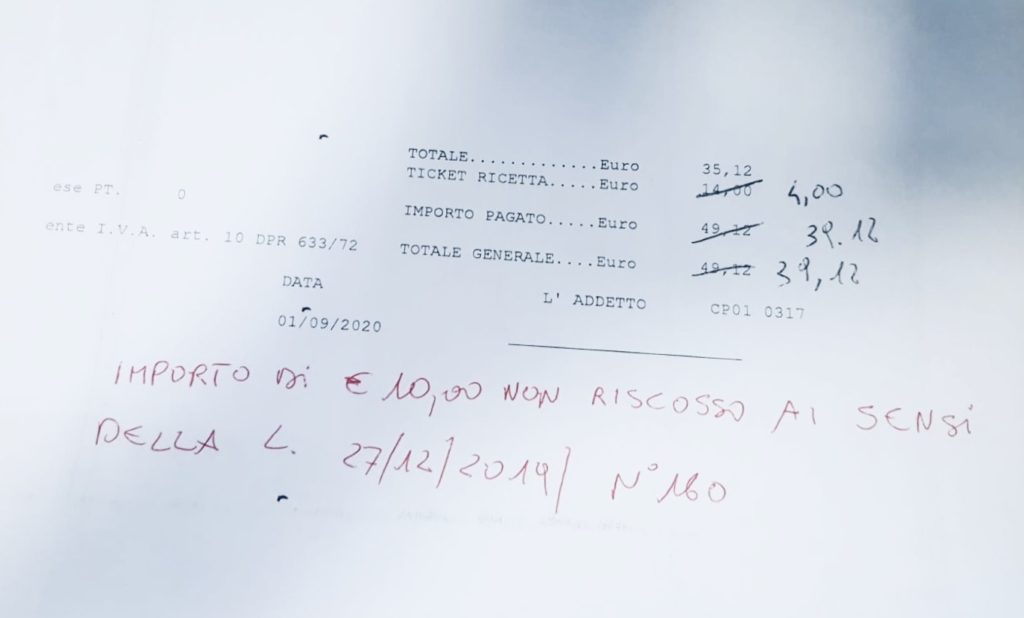 TOTALE.............Euro 35,12
TICKET RICETTA.....Euro 14,00 4,00
ese PT. 0
IMPORTO PAGATO.....Euro 49,12 39.12
ente I.V.A. art. 10 DPR 633/72
TOTALE GENERALE....Euro 49,12 39,12
DATA
L' ADDETTO CP01 0317
01/09/2020
IMPORTO DI € 10,00 NON RISCOSSO AI SENSI
DELLA L. 27/12/2019/ N° 160